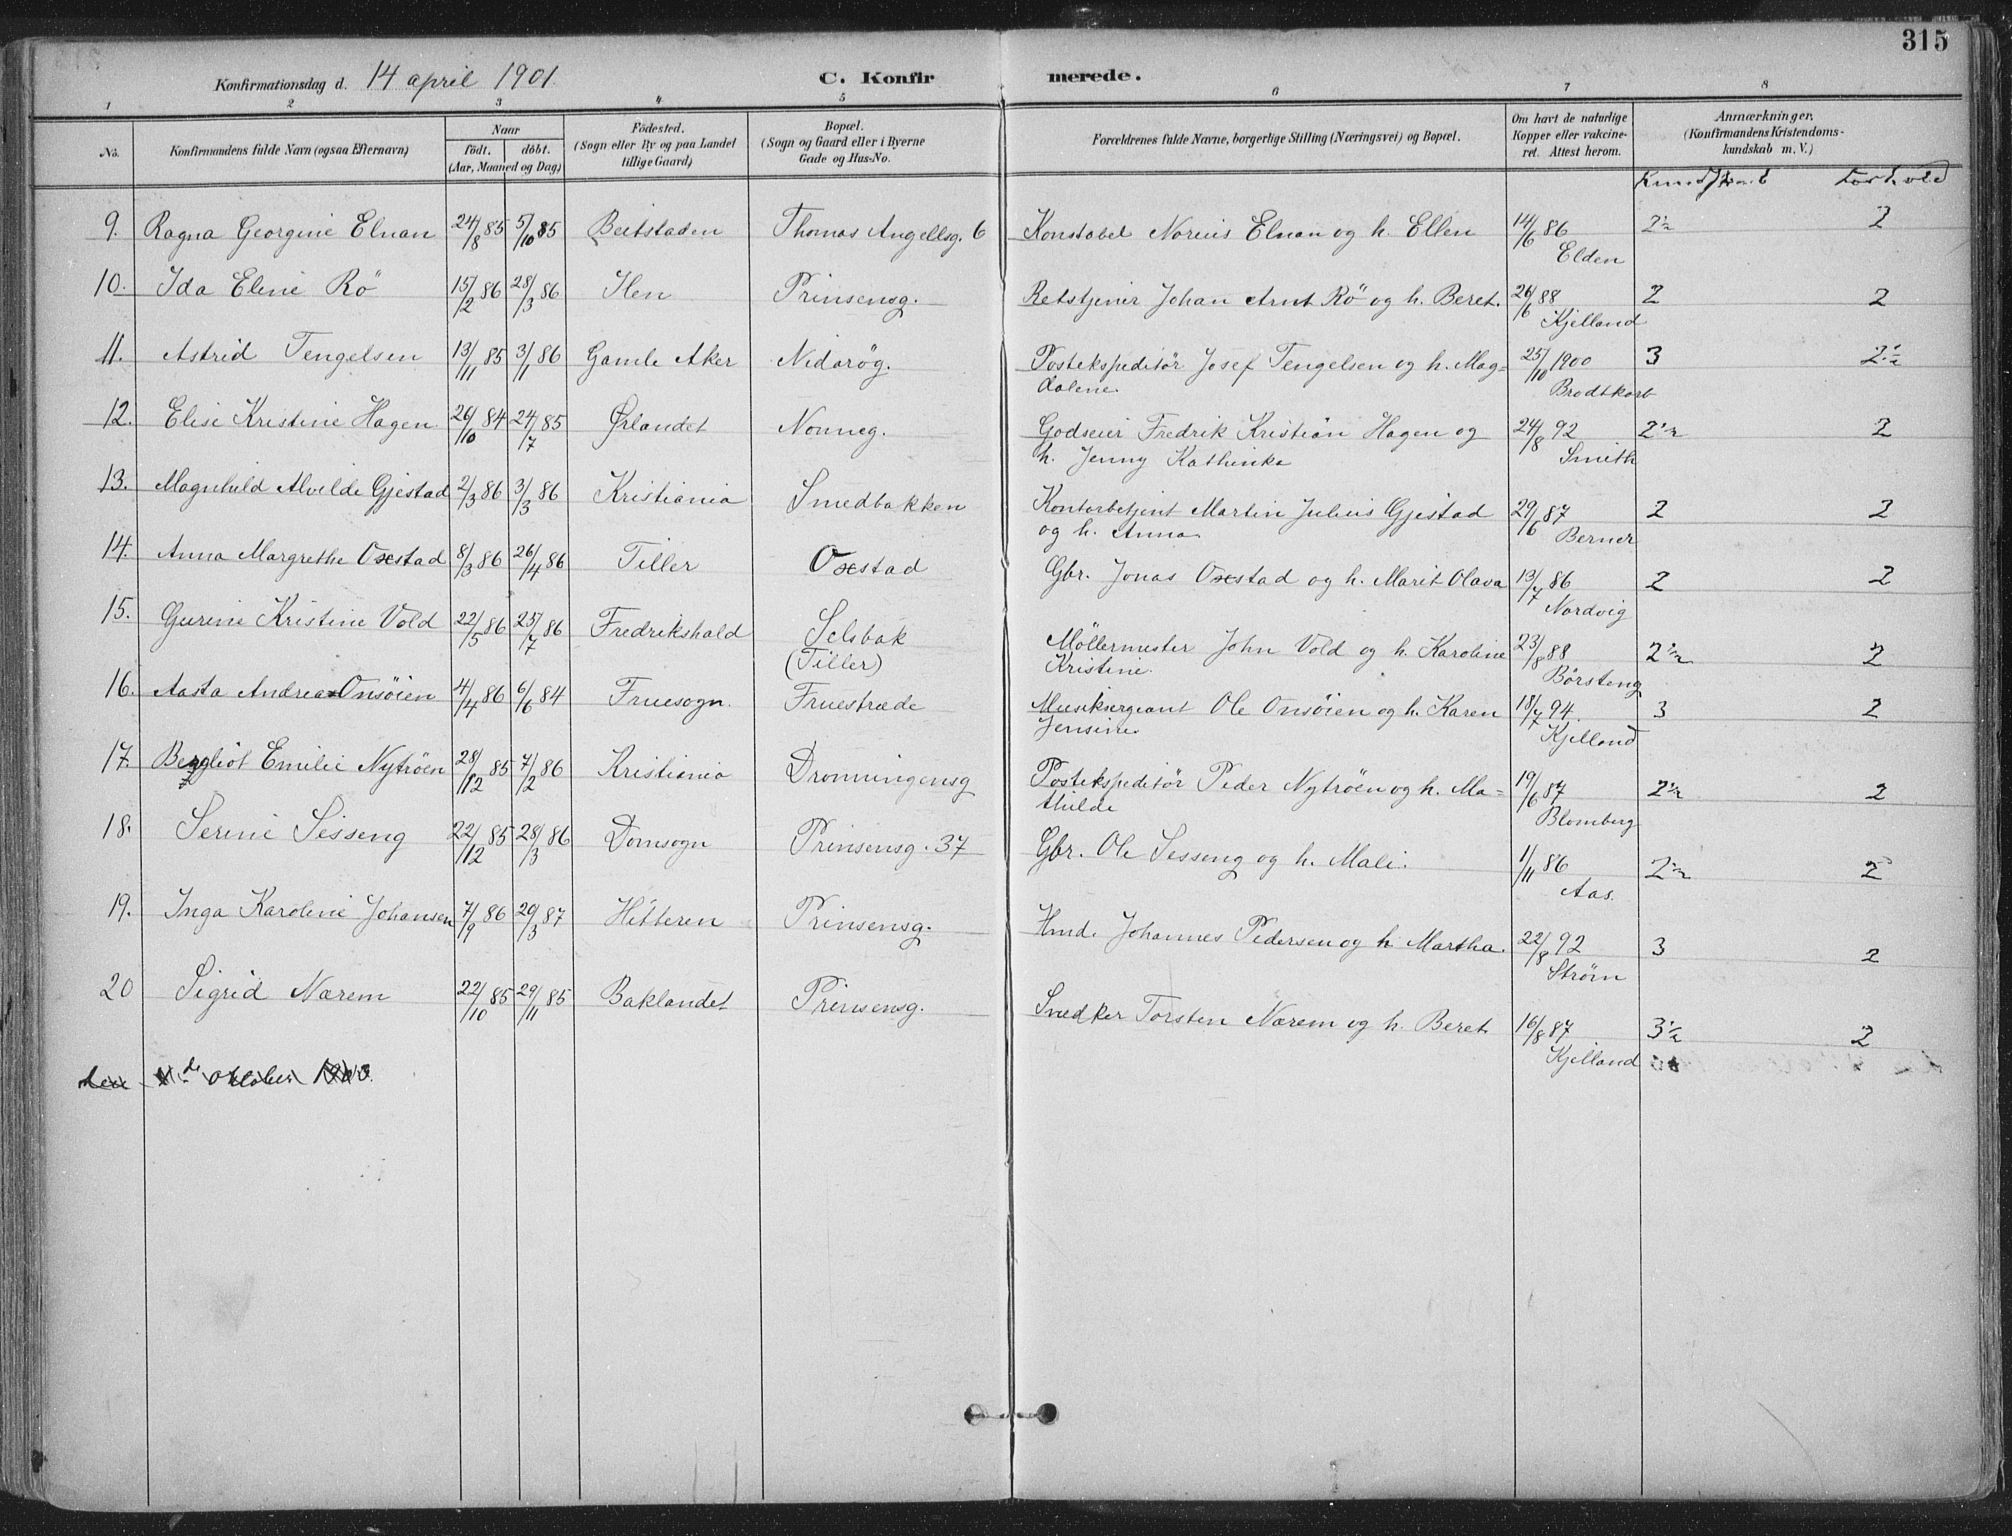 315
Konfirmationsdag d. 14 april 1901. C. Konfirmerede.
1 2 3 4 5 6 7 8
No. Konfirmandens fulde Navn (ogsaa Efternavn) Naar født. døbt. (Aar, Maaned og Dag) Fødested. (Sogn eller By og paa Landet tillige Gaard) Bopæl. (Sogn og Gaard eller i Byerne Gade og Hus-No. Forældrenes fulde Navne, borgerlige Stilling (Næringsvei) og Bopæl. Om havt de naturlige Kopper eller vakcineret. Attest herom. Anmærkninger. (Konfirmandens Kristendomskundskab m. V.)
Kundskab Forhold
9. Ragna Georgine Elnan 24/8 85 5/10 85 Beitstaden Thomas Angellsg. 6 Konstabel Norius Elnan og h. Ellen 14/6 86 Elden 2½ 2
10. Ida Eline Rö 15/2 86 28/3 86 Ilen Prinsensg. Retstjener Johan Arnt Rö og h. Beret. 26/6 88 Kjelland 2 2
11. Astrid Tengelsen 13/11 85 3/1 86 Gamle Aker Nidarög. Postekspeditör Josef Tengelsen og h. Mag=
dalene. 25/10 1900 Brodtkorb 3 2½
12. Elise Kristine Hagen 26/10 84 24/7 85 Ørlandet Nonneg. Godseier Fredrik Kristian Hagen og
h. Jenny Kathinka 24/8 92 Smith 2½ 2
13. Magnhild Alvilde Gjestad 2/3 86 3/3 86 Kristiania Smedbakken Kontorbetjent Martin Julius Gjestad
og h. Anna 29/6 87 Berner 2 2
14. Anna Margrethe Oxstad 8/3 86 26/4 86 Tiller Oxstad Gbr. Jonas Oxstad og h. Marit Olava 13/7 86 Nordvig 2 2
15. Gurine Kristine Vold 22/5 86 25/7 86 Fredrikshald Selsbak
(Tiller) Möllermester John Vold og h. Karoline
Kristine. 23/8 88 Börsteng 2½ 2
16. Aasta Andrea Onsöien 4/4 86 6/6 84 Fruesogn. Fruestræde Musiksergeant Ole Onsöien og h. Karen
Jensine. 18/7 94. Kjelland 3 2
17. Bergliot Emilie Nytröen 28/12 85 7/2 86 Kristiania Dronningensg Postekspeditör Peder Nytröen og h. Ma=
thilde 19/6 87 Blomberg 2½ 2
18. Serine Sesseng 22/12 85 28/3 86 Domsogn Prinsensg. 37 Gbr. Ole Sesseng og h. Mali. 1/11 86 Aas. 2½ 2
19. Inga Karoline Johansen 7/9 86 29/3 87 Hitteren Prinsensg. Hmd. Johannes Pedersen og h Martha. 22/8 92 Ström 3 2
20 Sigrid Nærem 22/10 85 29/11 85 Baklandet Prinsensg. Snedker Torsten Nærem og h. Beret 16/8 87 Kjelland 3½ 2
den de oktober